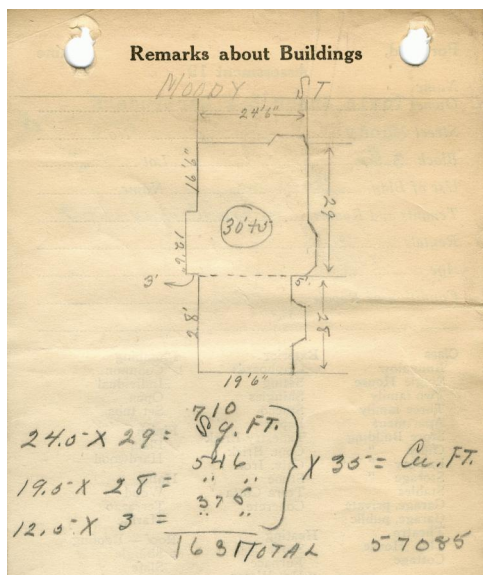 Remarks about Buildings
MOODY ST
24'6"
16'6"
29
30'+5
12'6"
3'
5'
28'
28
19'6"
24.5 X 29 = 710 Sq. FT.
19.5 X 28 = 546 " "
12.5 X 3 = 375 " "
1631 TOTAL
X 35 = Cu. FT.
57085